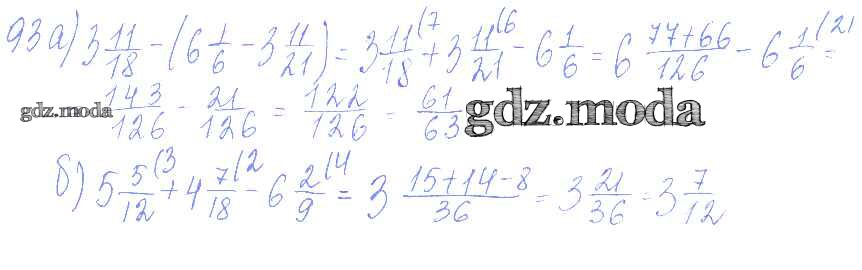 93 а) 3 11/18 - (6 1/6 - 3 11/21) = 3 11/18 (7 + 3 11/21 (6 - 6 1/6 = 6 77+66/126 - 6 1/6 (21 =
gdz.moda 143/126 - 21/126 = 122/126 = 61/63 gdz.moda
б) 5 5/12 (3 + 4 7/18 (2 - 6 2/9 (4 = 3 15+14-8/36 = 3 21/36 = 3 7/12